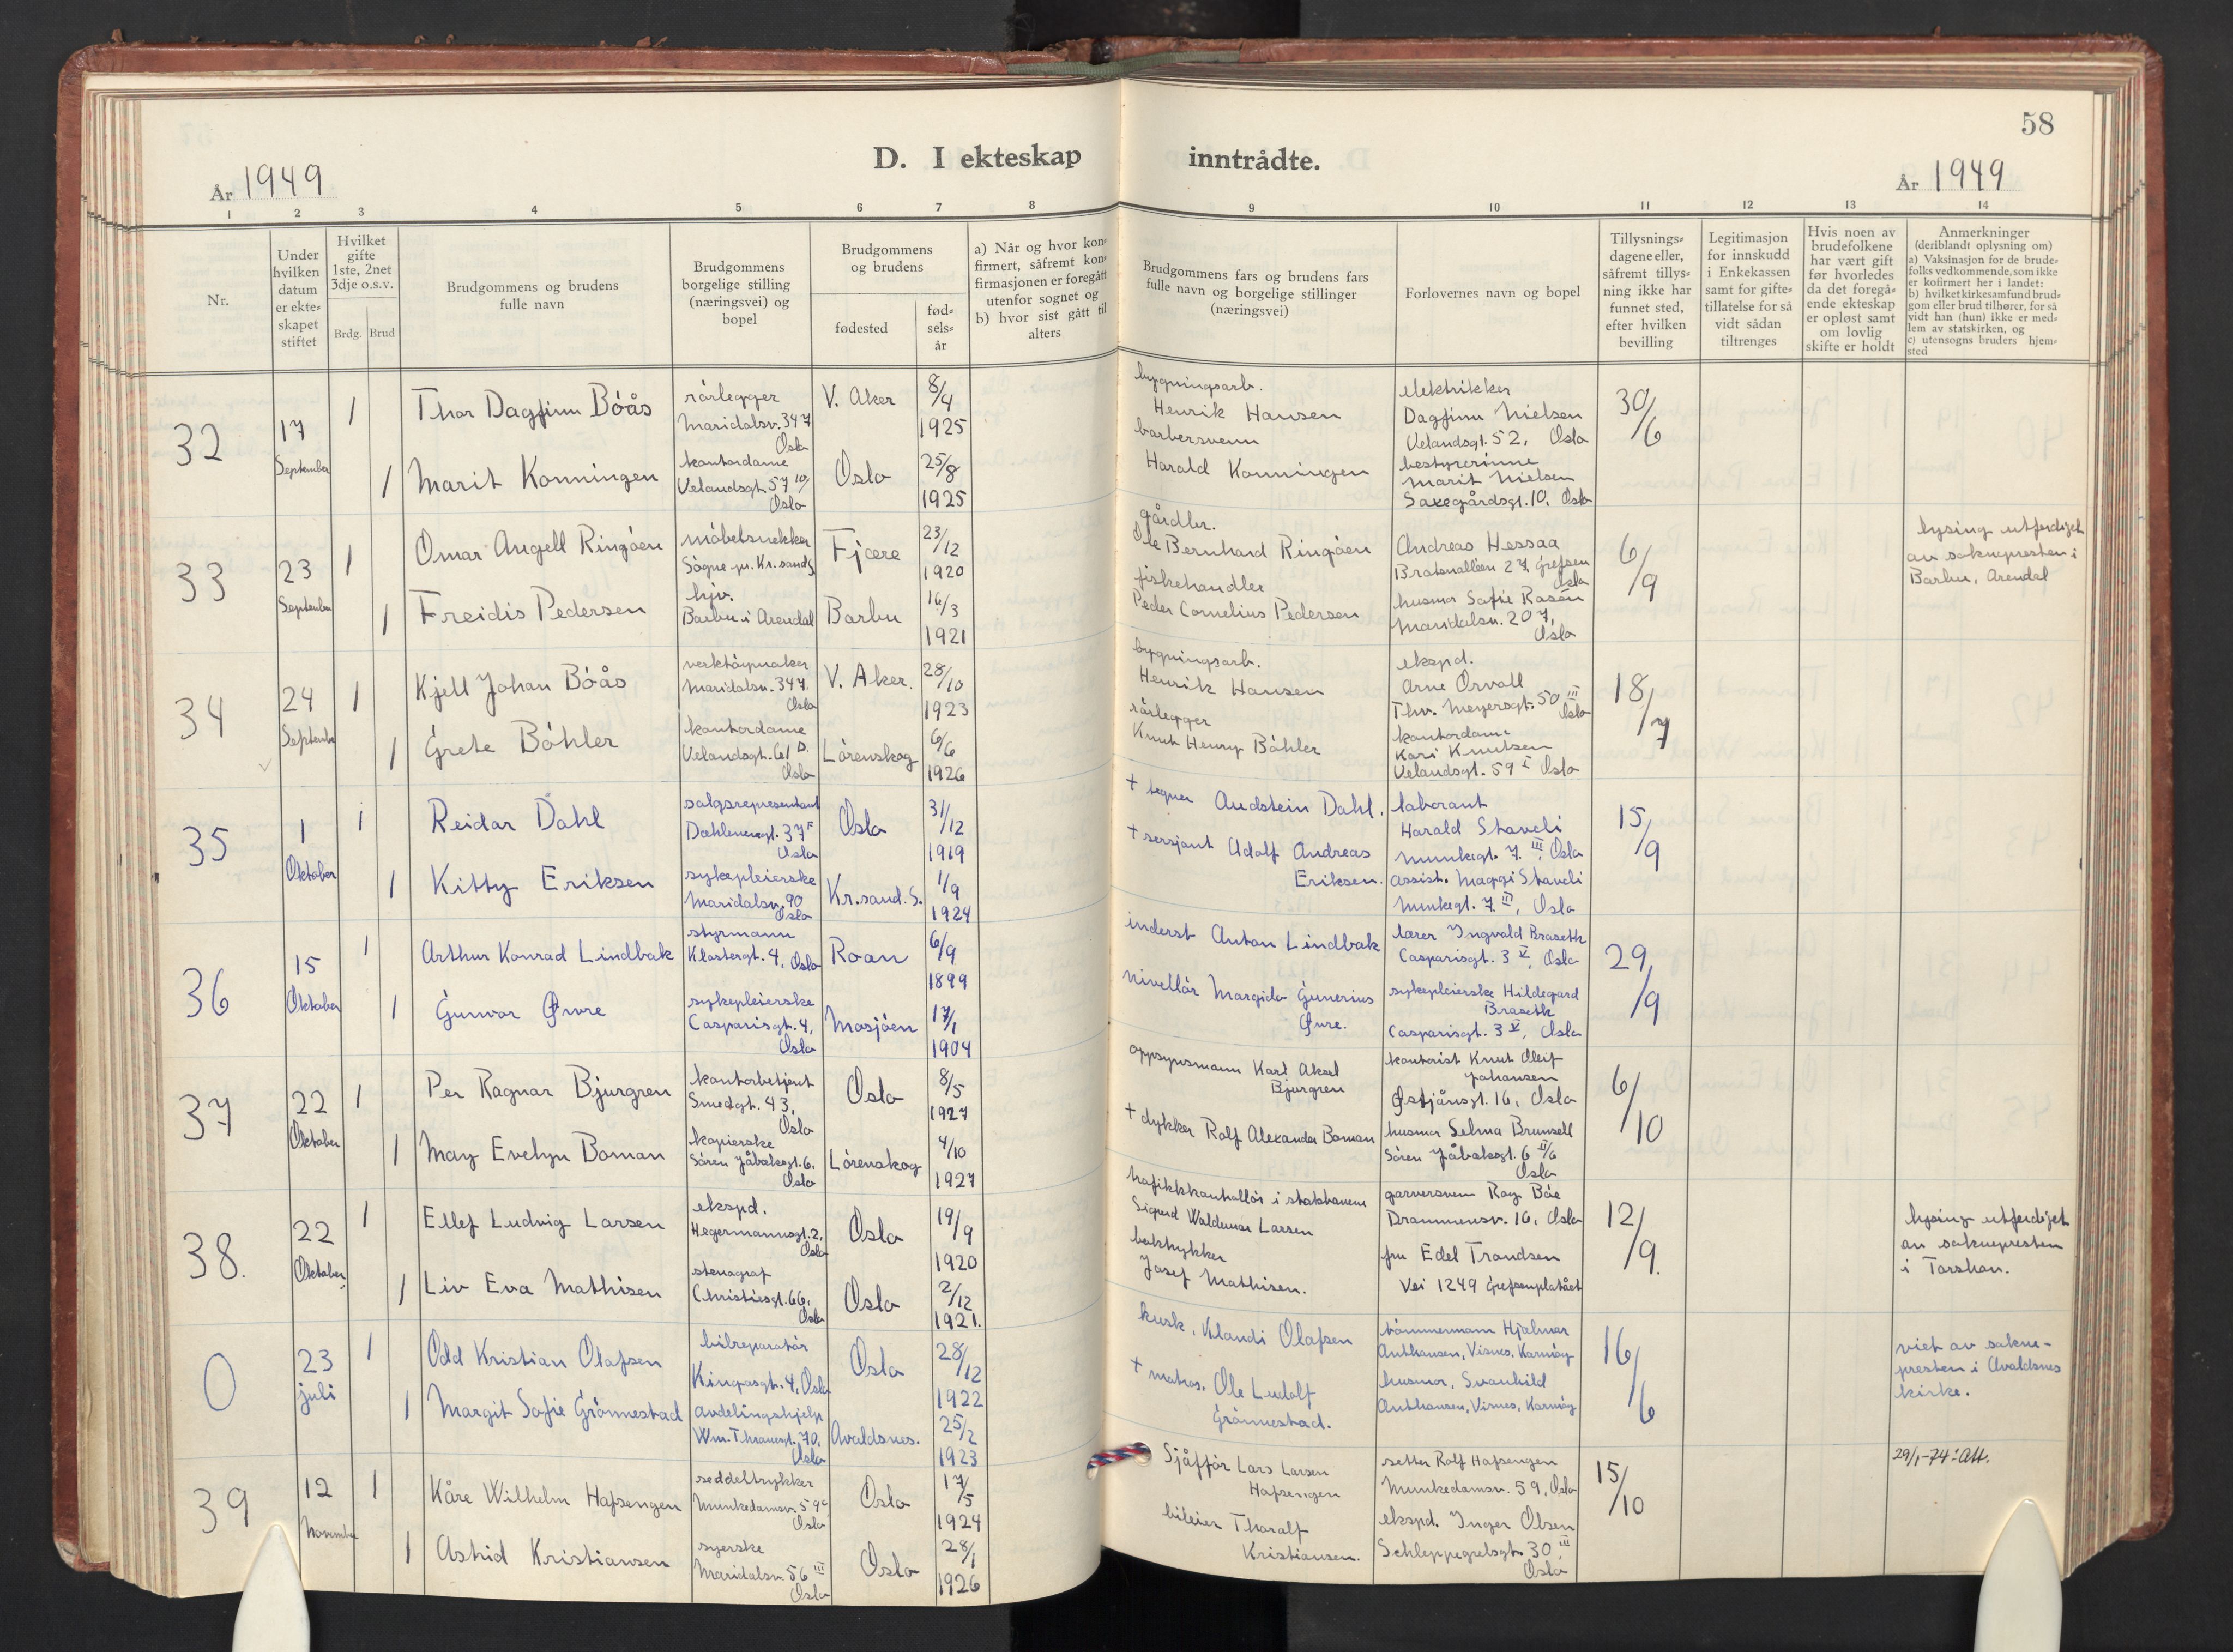 58
D. I ekteskap inntrådte.
År 1949
År 1949
1 2 3 4 5 6 7 8 9 10 11 12 13 14
Nr.
Under
hvilken
datum
er ekte-
skapet
stiftet
Hvilket
gifte
1ste, 2net
3dje o.s.v.
Brdg. Brud
Brudgommens og brudens
fulle navn
Brudgommens
borgelige stilling
(næringsvei) og
bopel
Brudgommens
og brudens
fødested
fød-
sels-
år
a) Når og hvor kon-
firmert, såfremt kon-
firmasjonen er foregått
utenfor sognet og
b) hvor sist gått til
alters
Brudgommens fars og brudens fars
fulle navn og borgelige stillinger
(næringsvei)
Forlovernes navn og bopel
Tillysnings-
dagene eller,
såfremt tillys-
ning ikke har
funnet sted,
efter hvilken
bevilling
Legitimasjon
for innskudd
i Enkekassen
samt for gifte-
tillatelse for så
vidt sådan
tiltrenges
Hvis noen av
brudefolkene
har vært gift
før hvorledes
da det foregå-
ende ekteskap
er opløst samt
om lovlig
skifte er holdt
Anmerkninger
(deriblandt oplysning om)
a) Vaksinasjon for de brude-
folks vedkommende, som ikke
er kofirmert her i landet:
b) hvilket kirkesamfund brud-
gom eller brud tilhører, for så
vidt han (hun) ikke er med-
lem av statskirken, og
c) utensogns bruders hjem-
sted
32
17
September
1
Thor Dagfinn Böås
rörlegger
Maridalsv. 347
Oslo
V. Aker
8/4
1925
bygningsarb.
Henrik Hansen
elektrikker
Dagfinn Nielsen
Velandsgt. 52, Oslo
30/6
1
Marit Konningen
kontordame
Velandsgt. 57 10/
Oslo
Oslo
25/8
1925
barbersvenn
Harald Konningen
bestyrerinne
Marit Nielsen
Saxegårdsgt. 10, Oslo
33
23
September
1
Omar Angell Ringöen
möbelsnekker
Sögne pr. Kr.sand S.
Fjære
23/12
1920
gårdbr.
Ole Bernhard Ringöen
Andreas Hessaa
Bratnalléen 27, Grefsen
Oslo
6/9
lysing utferdiget
av sokneprесten i
Barbu, Arendal
1
Freidis Pedersen
hjv.
Barbu i Arendal
Barbu
16/3
1921
fiskehandler
Peder Cornelius Pedersen
husmor Sofie Rosén
Maridalsv. 207,
Oslo
34
24
September
1
Kjell Johan Böås
verktöymaker
Maridalsv. 347,
Oslo
V. Aker.
28/10
1923
bygningsarb.
Henrik Hansen
ekspd.
Arne Orvall
Thv. Meyersgt. 50 III
Oslo
18/7
1
Grete Böhler
kontordame
Velandsgt. 61 D.
Oslo
Lörenskog
6/6
1926
rörlegger
Knut Henry Böhler
kontordame
Kari Knutsen
Velandsgt. 59 I Oslo
35
1
Oktober
1
Reidar Dahl
salgsrepresentant
Dæhlenengt. 37 F
Oslo
Oslo
31/12
1919
+ tegner Audstein Dahl.
laborant
Harald Staveli
Munkegt. 7 III, Oslo
15/9
1
Kitty Eriksen
sykepleierske
Maridalsv. 90
Oslo
Kr.sand. S.
1/9
1924
+ sersjant Adolf Andreas
Eriksen.
assist. Maggi Staveli
Munkegt. 7 III, Oslo
36
15
Oktober
1
Arthur Konrad Lindbak
styrmann
Klostergt. 4, Oslo
Roan
6/9
1899
inderst Anton Lindbak
lærer Ingvald Brasetk
Casparisgt. 3 V, Oslo
29/9
1
Gunvor Øvre
sykepleierske
Casparisgt. 4,
Oslo
Mosjöen
17/1
1904
nivellör Margido Gunerius
Øvre.
sykepleierske Hildegard
Brasetk
Casparisgt. 3 V, Oslo
37
22
Oktober
1
Per Ragnar Bjurgren
kontorbetjent
Smedgt. 43,
Oslo
Oslo
8/5
1927
oppsynsmann Karl Aksel
Bjurgren
kontorist Knut Oleif
Johansen
Østjånsgt. 16, Oslo
6/10
1
May Evelyn Boman
kopierske
Sören Jåbæksgt. 6,
Oslo
Lörenskog
4/10
1927
+ dykker Rolf Alexander Boman
husmor Selma Brunsell
Sören Jåbæksgt. 6 II/6
Oslo
38.
22
Oktober
1
Ellef Ludvig Larsen
ekspd.
Hegermannsgt. 2,
Oslo
Oslo
19/9
1920
trafikkkontrollör i statsbanene
Sigurd Waldemar Larsen
garversvenn Roy Böe
Drammensv. 16, Oslo
12/9.
lysing utferdiget
av sokneprесten
i Torshov.
1
Liv Eva Mathisen
stenograf
Christiesgt. 66,
Oslo
Oslo
2/12
1921.
boktrykker
Josef Mathisen.
fru Edel Trondsen
Vei 1249 Grefsenplatået
0
23
juli
1
Odd Kristian Olafsen
bilreparatör
Kingosgt. 4, Oslo
Oslo
28/12
1922
kusk, Klaudi Olafsen
tömmermann Hjalmar
Anthonsen, Visnes, Karmöy
16/6
viet av sokne-
presten i Avaldsnes
kirke.
1
Margit Sofie Grönnestad
avdelingshjelp
Wm. Thranesgt. 70,
Oslo
Avaldsnes.
25/2
1923
+ matros, Ole Ludolf
Grönnestad.
husmor, Svanhild
Anthonsen, Visnes, Karmöy
39
12
November
1
Kåre Wilhelm Hafsengen
seddeltrykker
Munkedamsv. 59 c
Oslo
Oslo
17/5
1924
Sjåfför Lars Larsen
Hafsengen
setter Rolf Hafsengen
Munkedamsv. 59, Oslo
15/10
29/1-74: Att.
1
Astrid Kristiansen
syerske
Maridalsv. 56 III
Oslo
Oslo
28/1
1926
bileier Thoralf
Kristiansen.
ekspd. Inger Olsen
Schleppegrelsgt. 30 III
Oslo